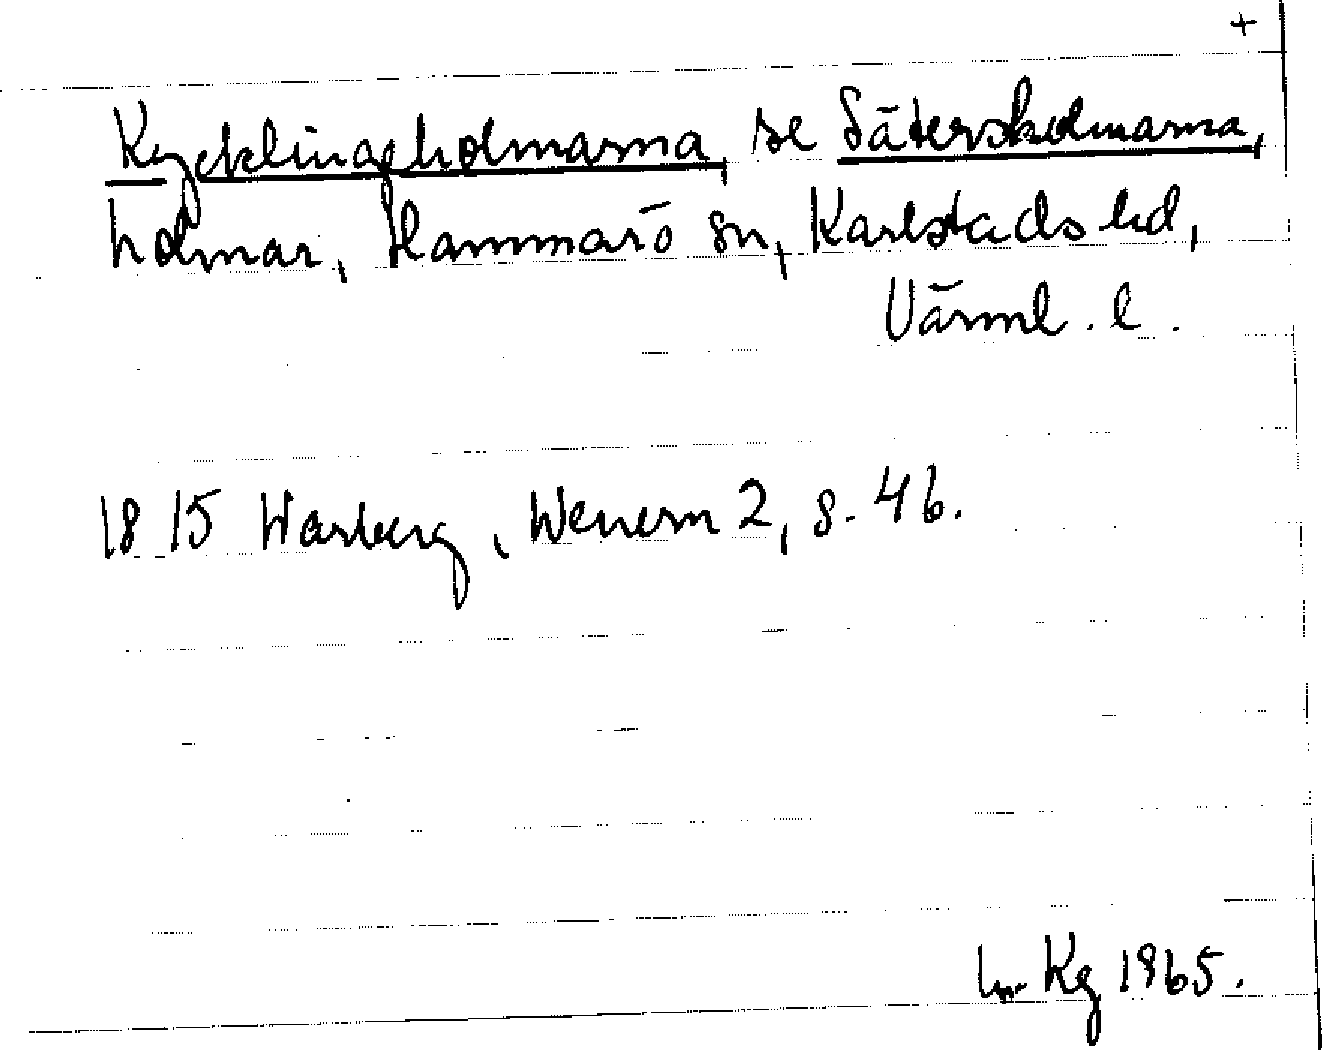 +
Kycklingholmarna, se Sätersholmarna,
holmar, Hammarö sn, Karlstads hd,
Värml. l.
1815 Warberg, Wenern 2, s. 46.
Kg 1965.